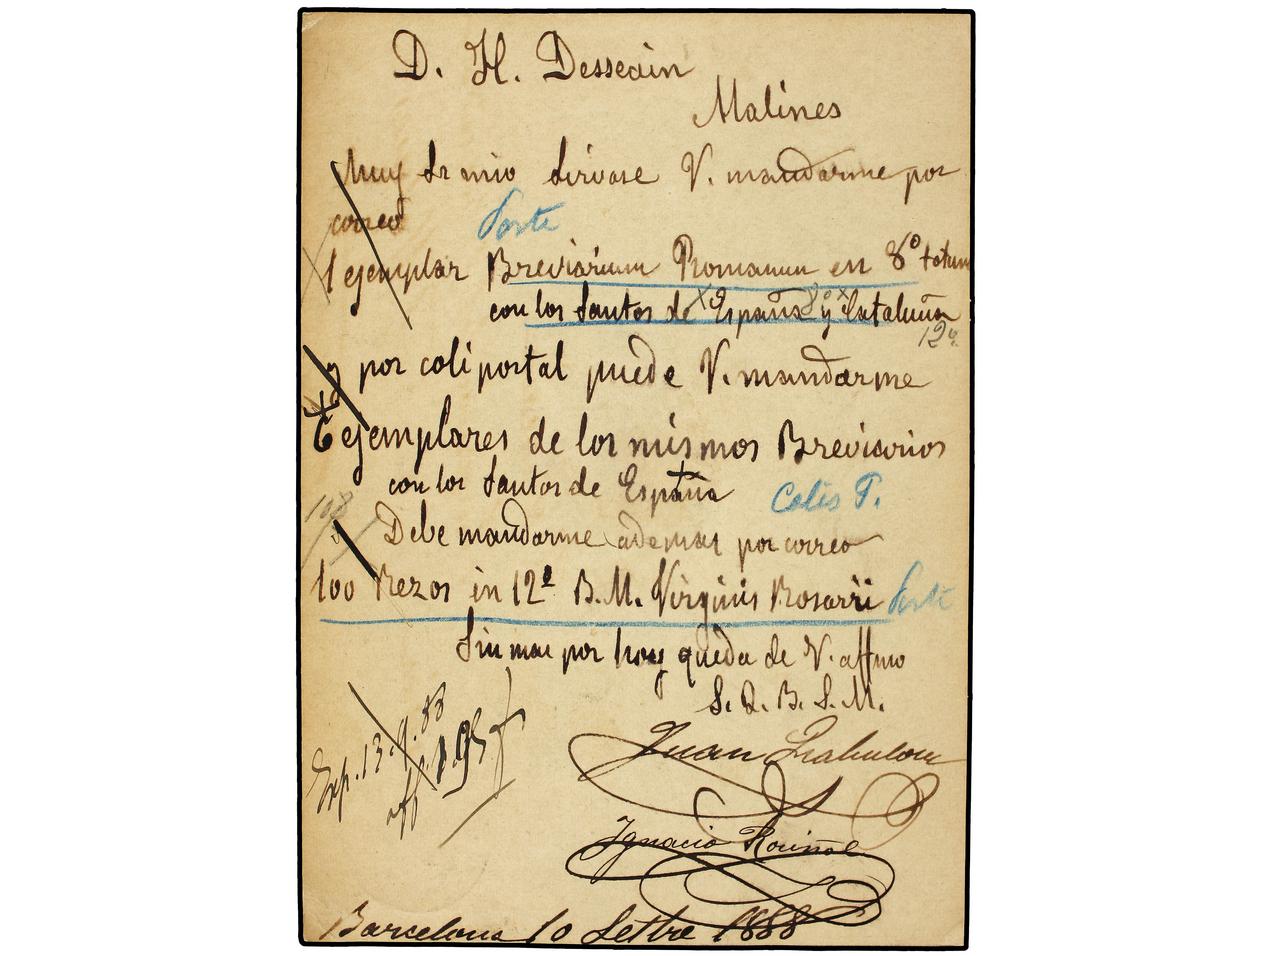 D. H. Dessain
Malines
Muy Sr mio Sirvase V. mandarme por
correo
Poste
1 ejemplar Breviarium Romanum en 8º totum
con los Santos de España y Cataluña
8º
12º
y por coli portal puede V. mandarme
6 ejemplares de los mismos Breviarios
con los Santos de España
Colis P.
108
Debe mandarme ademas por correo
100 Rezos in 12º B.M. Virginis Rosarii
Poste
Sin mas por hoy queda de V. affmo
S. Q. B. S. M.
Juan
Exp. 13.9.88
aff
Ignacio
Barcelona 10 Setbre 1888